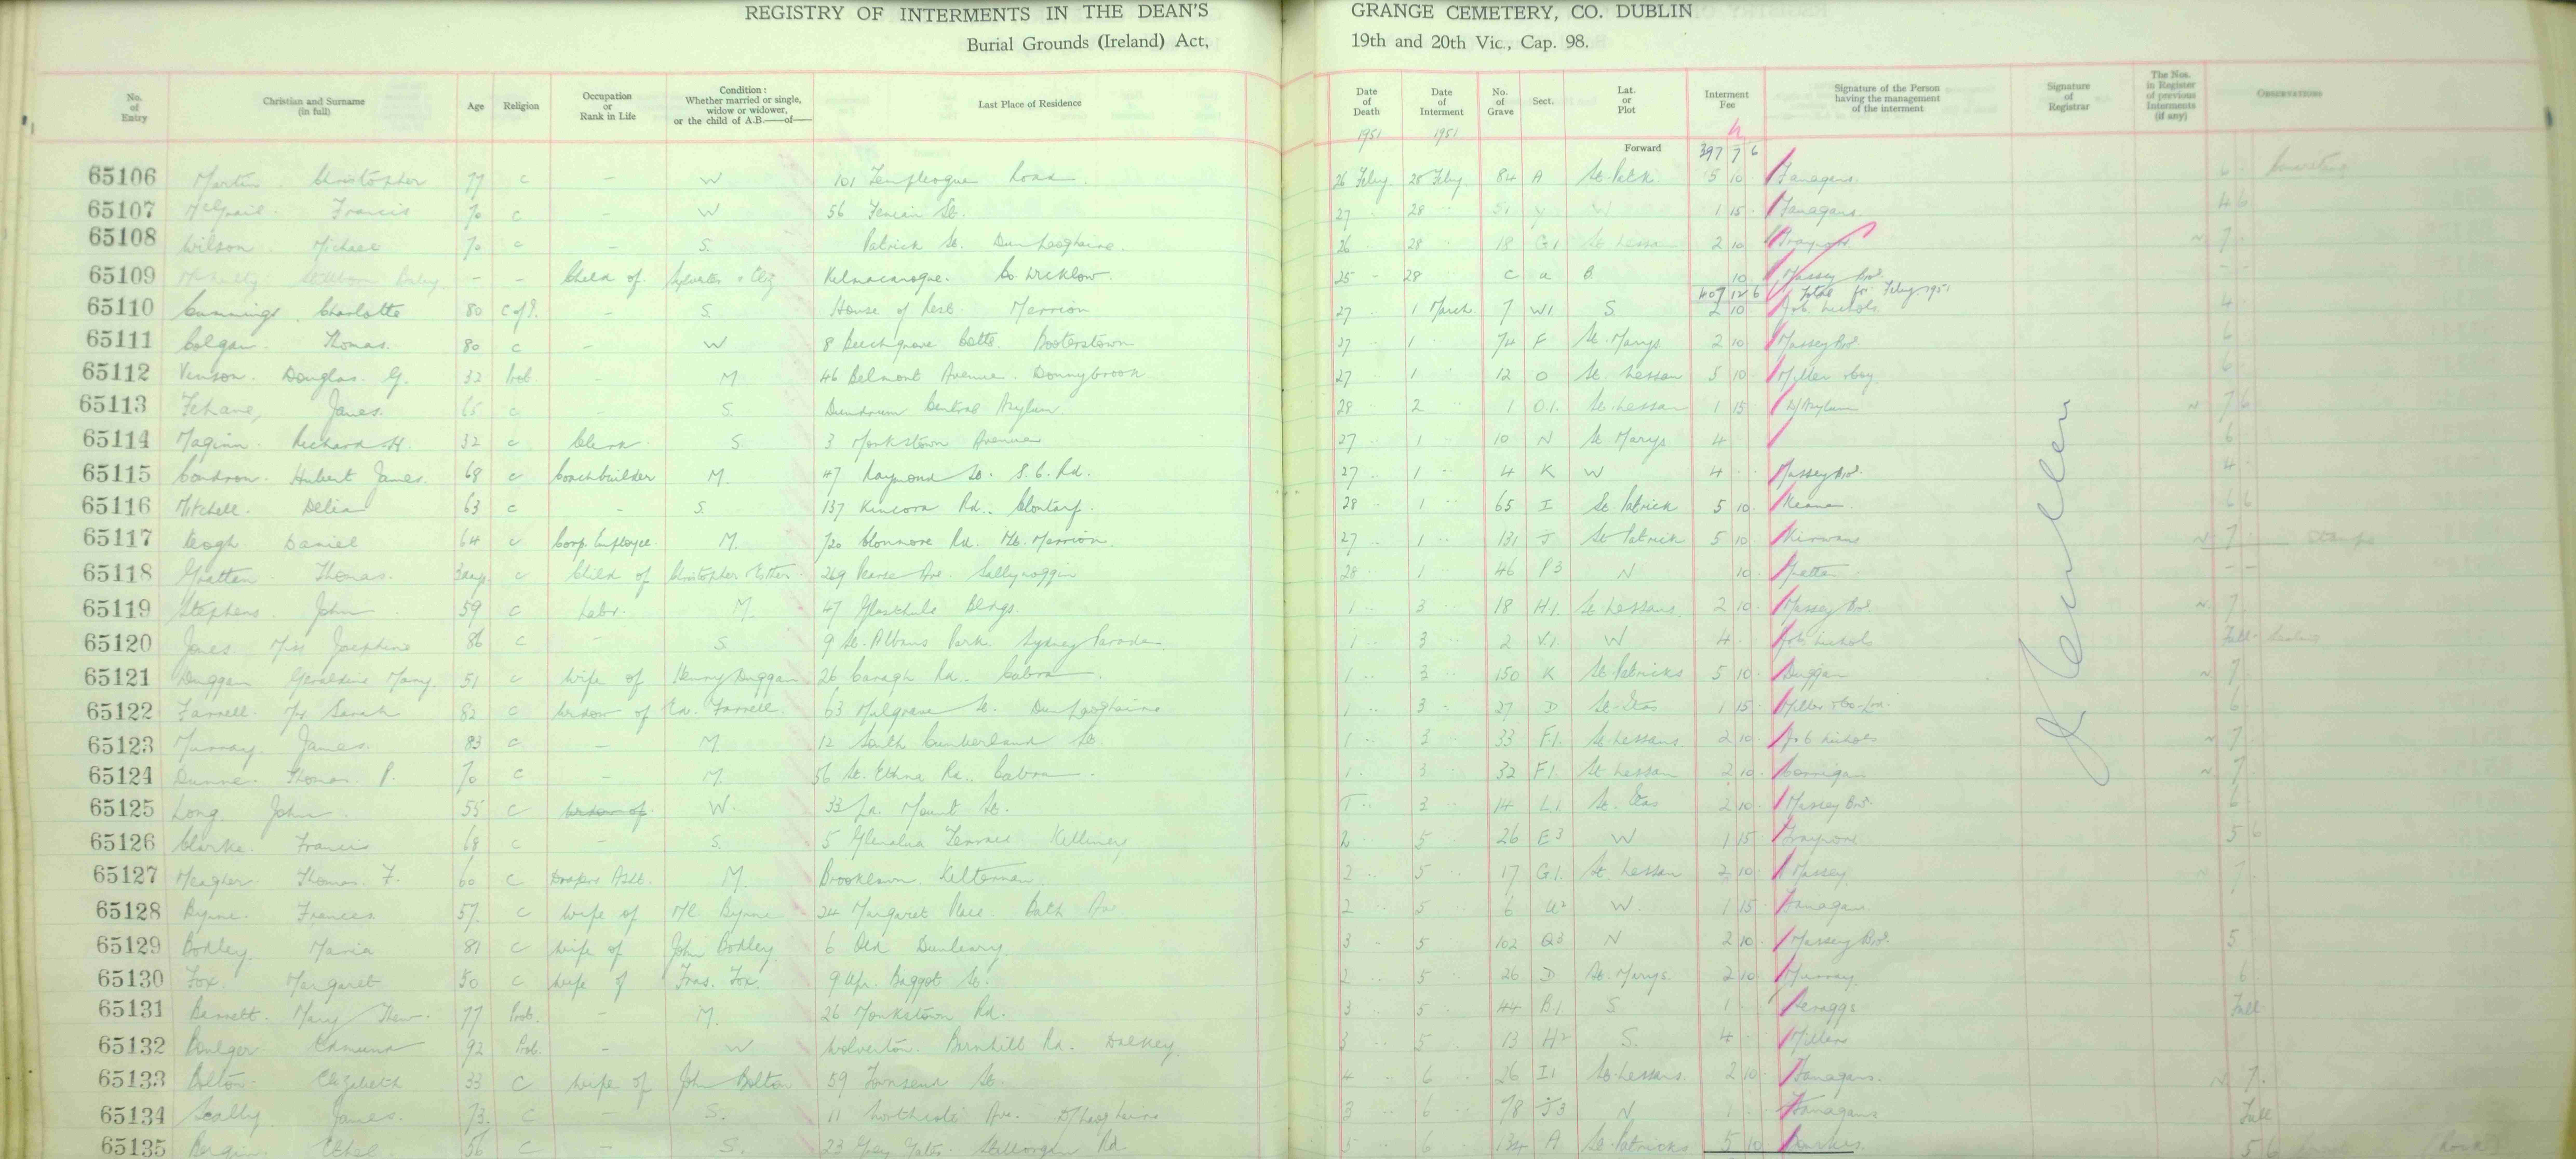 REGISTRY OF INTERMENTS IN THE DEAN'S GRANGE CEMETERY, CO. DUBLIN
Burial Grounds (Ireland) Act, 19th and 20th Vic., Cap. 98.
No. of Entry Christian and Surname (in full) Age Religion Occupation or Rank in Life Condition: Whether married or single, widow or widower, or the child of A.B.——of—— Last Place of Residence Date of Death Date of Interment No. of Grave Sect. Lat. or Plot Interment Fee Signature of the Person having the management of the interment Signature of Registrar The Nos. in Register of previous Interments (if any) OBSERVATIONS
1951 1951
Forward 397 7 6
65106 Martin Christopher 77 c - W 101 Templeogue Road 26 Feby 28 Feby 84 A St. Patk. 5 10 Fanagans
65107 McGrail Francis 70 c - W 56 Fenian St. 27 28 51 Y 1 15 Fanagans 4 6
65108 Wilson Michael 70 c - S. Patrick St. Dun Laoghaire. 26 28 18 G1 St. Lessan 2 10 N 7
65109 Baby - - Child of Sylvester & Eliz Kilmacanogue. Co. Wicklow 25 28 c a B 10 Massey Bros.
407 12 6 Total for Feby 1951
65110 Cummings Charlotte 80 C of I. - S. House of Rest Merrion 27 1 March 7 W1 S 2 10 Job. Nichols 4
65111 Colgan Thomas. 80 c - W 8 Beechgrove Cotts. Booterstown 27 1 74 F St. Marys 2 10 Massey Bros. 6
65112 Vinson. Douglas. G. 32 Prot. - M 46 Belmont Avenue. Donnybrook 27 1 12 O St. Lessan 5 10 6
65113 James. 65 c - S. Dundrum Central Asylum 28 2 1 O1. St. Lessan 1 15 D/Asylum N 7 6
65114 Maginn. Richard H. 32 c Clerk S 3 Monkstown Avenue 27 1 10 N St Marys 4 6
65115 Condron. Hubert James. 68 c Coachbuilder M 47 Raymond St. S.C. Rd. 27 1 4 K W 4 Massey Bros. 4
65116 Mitchell. Delia 63 c - S. 137 Kincora Rd. Clontarf. 28 1 65 I St. Patrick 5 10 Keane. 6 6
65117 Keogh Daniel 64 c Corp. Employee. M. 120 Clonmore Rd. Mt. Merrion. 27 1 131 J St Patrick 5 10 Kirwans N 7
65118 Gratten Thomas. 3 days c Child of Christopher Esther. 269 Pearse Ave. Sallynoggin 28 1 46 P3 N 10 Gratten - -
65119 Stephens John 59 c Labr. M. 47 Glasthule Bldgs. 1 3 18 H1. St Lessans. 2 10 Massey Bros. N 7
65120 Jones Miss Josephine 86 c - S 9 St. Albans Park. Sydney Parade. 1 3 2 V1. W 4 Job. Nichols Full
65121 Duggan Geraldine Mary. 51 c Wife of Henry Duggan 26 Caragh Rd. Cabra. 1 3 150 K St. Patricks 5 10 Duggan N 7
65122 Farrell. Mrs Sarah 82 c Widow of Ed. Farrell. 63 Mulgrave St. Dun Laoghaire 1 3 27 D St. Itas 1 15 6
65123 Murray. James. 83 c - M. 12 South Cumberland St. 1 3 33 F1. St. Lessans. 2 10 Job Nichols N 7
65124 Dunne. Thomas. P. 70 c - M. 56 St. Ethna Rd., Cabra. 1 3 32 F1. St Lessan 2 10 Corrigan N 7
65125 Long John. 55 c Widow of W. 33 La. Mount St. 1 3 14 L1. St. Itas 2 10 Massey Bros. 6
65126 Clarke. Francis 68 c - S. 5 Glenalua Terrace Killiney 2 5 26 E3 W 1 15 Traynors 5 6
65127 Meagher Thomas. F. 60 c Drapers Asst. M. Brooklawn. Kilternan. 2 5 17 G1. St. Lessan 2 10 Massey N 7
65128 Byrne. Frances 57. c Wife of Ml. Byrne 24 Margaret Place. Bath Ave 2 5 6 U2 W. 1 15 Fanagans
65129 Bodley Maria 81 c Wife of John Bodley. 6 Old Dunleary. 3 5 102 Q3 N 2 10 Massey Bros. 5
65130 Fox. Margaret 50 c Wife of Fras. Fox. 9 Upr. Baggot St. 2 5 26 D St. Marys. 2 10 Murray 6
65131 Bennett. Mary 77 Prot. - M. 26 Monkstown Rd. 3 5 44 B1 S 1 Scraggs Full
65132 Boulger Edmund 92 Prot. - W Wolverton. Barnhill Rd. Dalkey 3 5 13 H2 S. 4 Millers
65133 Bolton. Elizabeth 33 C Wife of John Bolton 59 Townsend St. 4 6 26 I1 St. Lessans. 2 10 Fanagans. N 7.
65134 Scally James. 73. C - S. 11 Northcote Ave. D/Laoghaire 3 6 78 J3 N 1 Fanagans Full
65135 Bergin. Ethel 56 C - S. 23 Grey Gates. Stillorgan Rd. 5 6 134 A St. Patricks 5 10 5 6